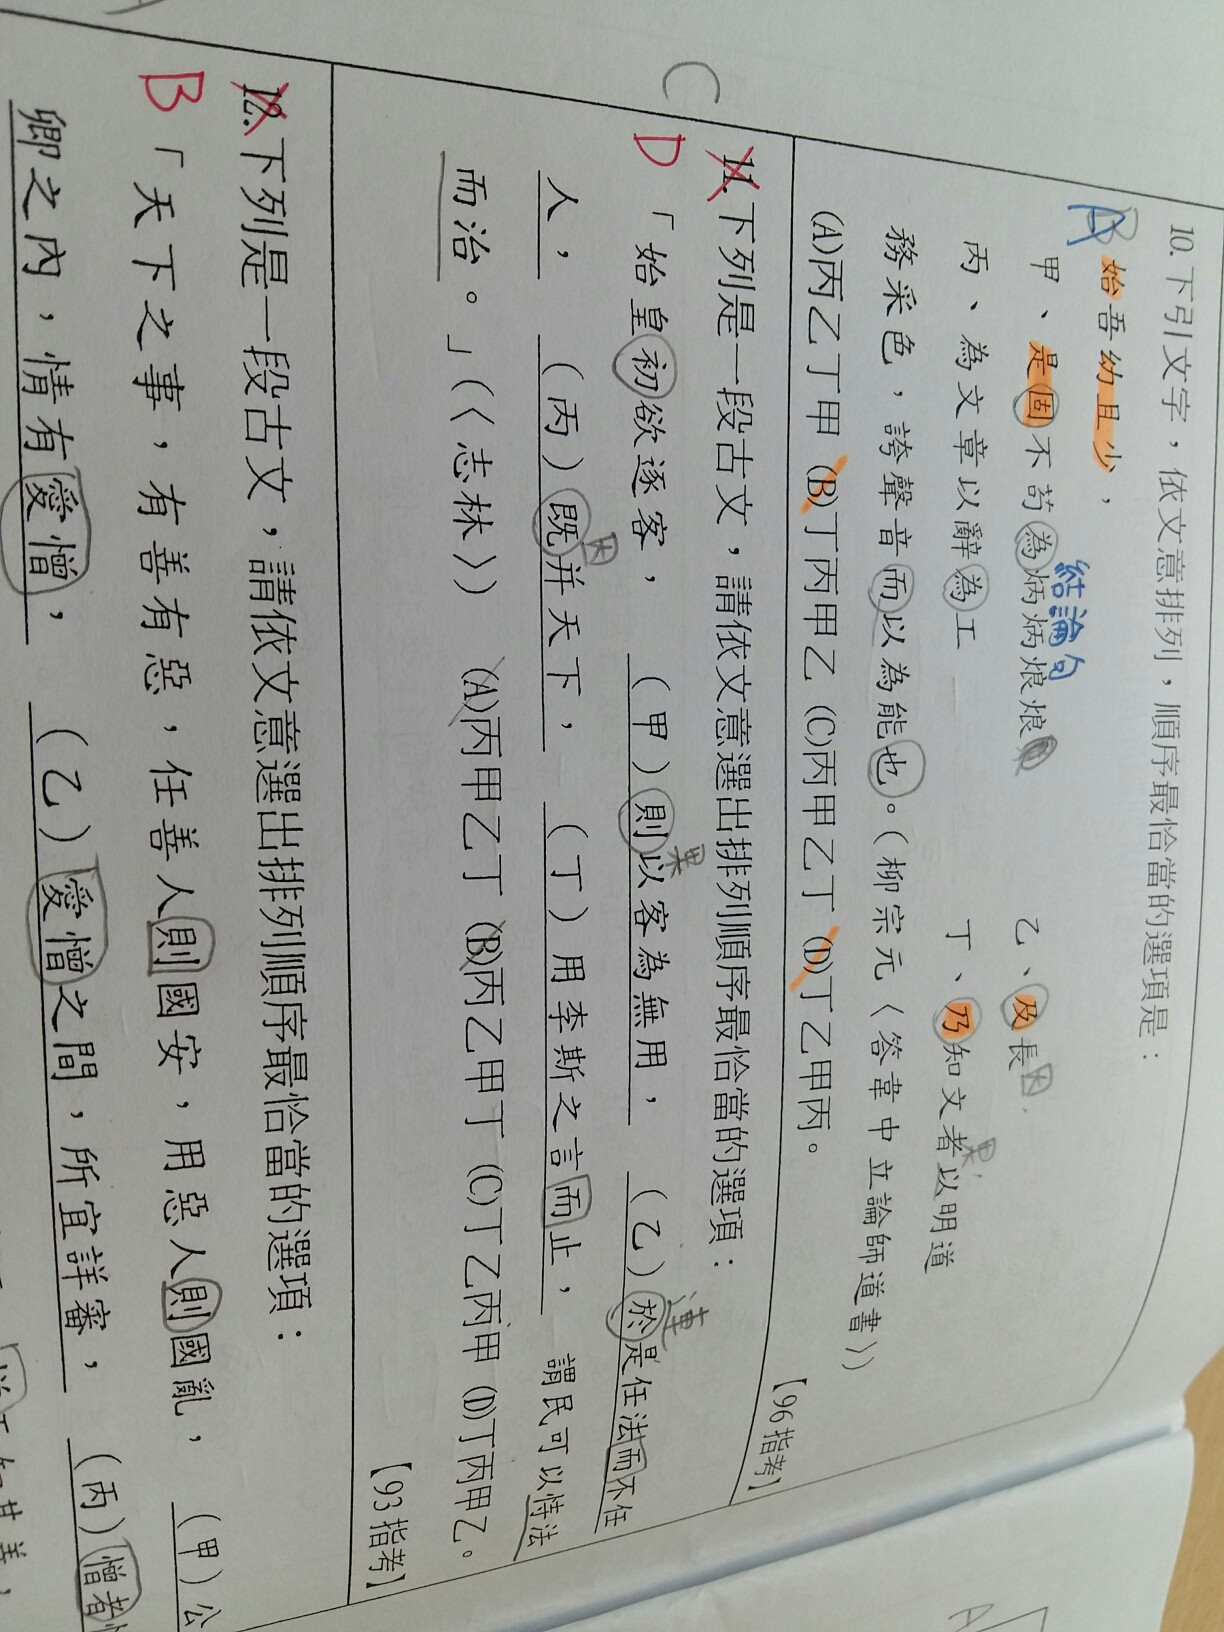 10.下引文字，依文意排列，順序最恰當的選項是：
A
始吾幼且少，
結論句
甲、是固不苟為炳炳烺烺
乙、及長
因
丙、為文章以辭為工
丁、乃知文者以明道
果
務采色，誇聲音而以為能也。（柳宗元〈答韋中立論師道書〉）
(A)丙乙丁甲 (B)丁丙甲乙 (C)丙甲乙丁 (D)丁乙甲丙。
【96指考】
C
D
11.下列是一段古文，請依文意選出排列順序最恰當的選項：
「始皇初欲逐客，（甲）則以客為無用，（乙）於是任法而不任
果
連
人，（丙）既并天下，（丁）用李斯之言而止，謂民可以恃法
因
而治。」（〈志林〉） (A)丙甲乙丁 (B)丙乙甲丁 (C)丁乙丙甲 (D)丁丙甲乙。
【93指考】
B
12.下列是一段古文，請依文意選出排列順序最恰當的選項：
「天下之事，有善有惡，任善人則國安，用惡人則國亂，（甲）公
卿之內，情有愛憎，（乙）愛憎之間，所宜詳審，（丙）憎者